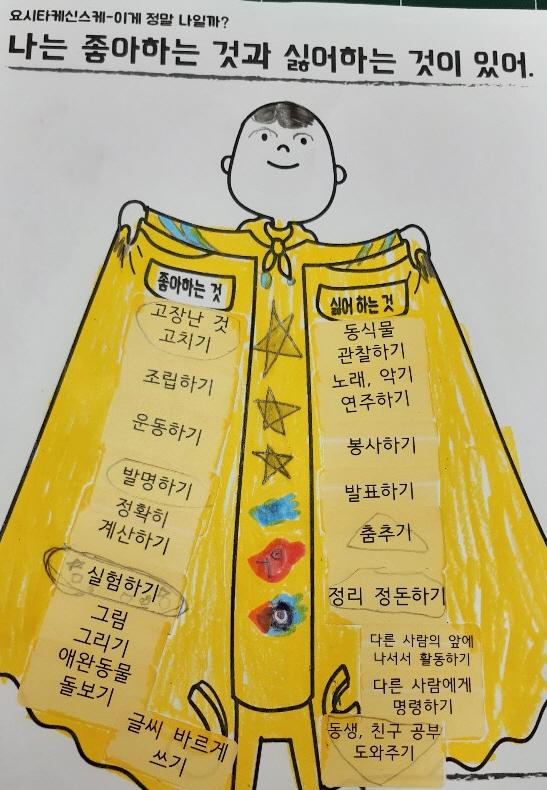 요시타케신스케-이게 정말 나일까?
나는 좋아하는 것과 싫어하는 것이 있어.
좋아하는 것
고장난 것
고치기
조립하기
운동하기
발명하기
정확히
계산하기
실험하기
그림
그리기
애완동물
돌보기
글씨 바르게
쓰기
싫어 하는 것
동식물
관찰하기
노래, 악기
연주하기
봉사하기
발표하기
춤추기
정리 정돈하기
다른 사람의 앞에
나서서 활동하기
다른 사람에게
명령하기
동생, 친구 공부
도와주기